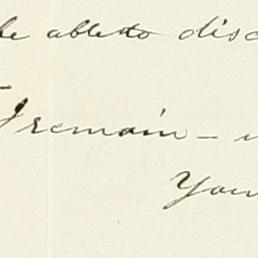 be able to disc
I remain - 
You